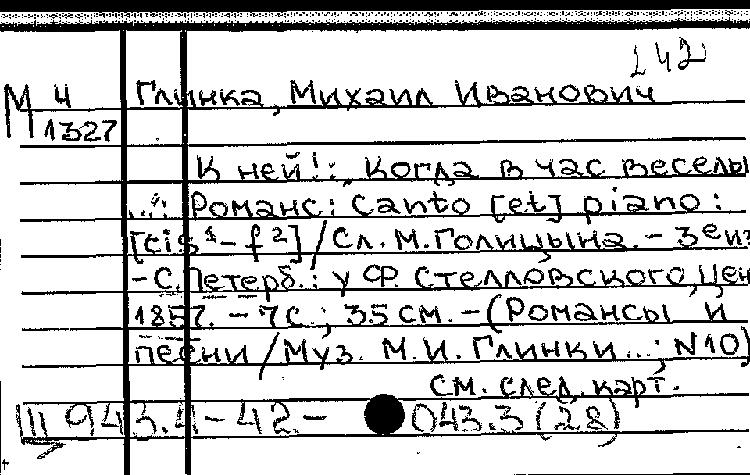 142
М 4 Глинка, Михаил Иванович
1327
К ней!:, Когда в час веселы
...": Романс: canto [et] piano:
[cis¹-f²]/Сл. М. Голицына. - 3е из
-С. Петерб.: у Ф. Стелловского, цен
1857. - 7 с.; 35 см. - (Романсы и
песни / Муз. М. И. Глинки...; N10)
см. след. карт.
III 943.4-42- 043.3 (28)